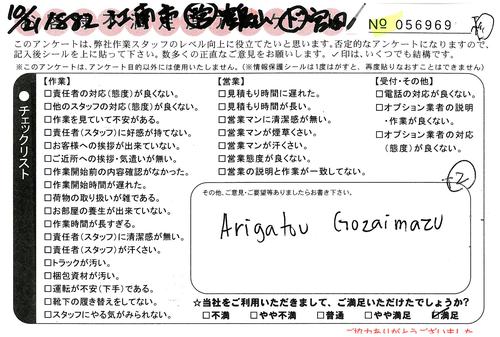 No 056969
このアンケートは、弊社作業スタッフのレベル向上に役立てたいと思います。否定的なアンケートになりますので、
記入後シールを上に貼って下さい。数多くの正直なご意見をお願いします。✓印は、いくつでも結構です。
※このアンケートは、アンケート目的以外には使用いたしません。（※情報保護シールは1度はがすと、再度貼りなおすことはできません）
●チェックリスト
【作業】
□責任者の対応(態度)が良くない。
□他のスタッフの対応(態度)が良くない。
□作業を見ていて不安がある。
□責任者(スタッフ)に好感が持てない。
□お客様への挨拶が出来ていない。
□ご近所への挨拶・気遣いが無い。
□作業開始前の内容確認がなかった。
□作業開始時間が遅れた。
□荷物の取り扱いが雑である。
□お部屋の養生が出来ていない。
□作業時間が長すぎる。
□責任者(スタッフ)に清潔感が無い。
□責任者(スタッフ)が汗くさい。
□トラックが汚い。
□梱包資材が汚い。
□運転が不安(下手)である。
□靴下の履き替えをしてない。
□スタッフにやる気がみられない。
【営業】
□見積もり時間に遅れた。
□見積もり時間が長い。
□営業マンに清潔感が無い。
□営業マンが煙草くさい。
□営業マンが汗くさい。
□営業態度が良くない。
□営業の説明と作業が一致してない。
【受付・その他】
□電話の対応が良くない。
□オプション業者の説明
・作業が良くない。
□オプション業者の対応
(態度)が良くない。
その他、ご意見・ご要望等ありましたらお書き下さい。
Arigatou Gozaimazu
☆当社をご利用いただきまして、ご満足いただけたでしょうか?
□不満 □やや不満 □普通 □やや満足 ☑満足
ご協力ありがとうございました